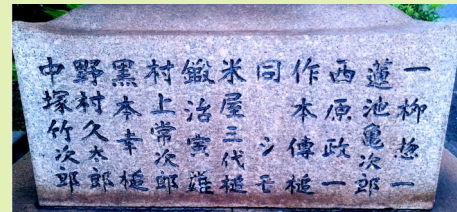 一柳惣一
蓮池亀次郎
西原政一
作本傳槌
同シモ
米屋三代槌
鍛治寅雄
村上常次郎
黒本幸槌
野村久太郎
中塚竹次郎